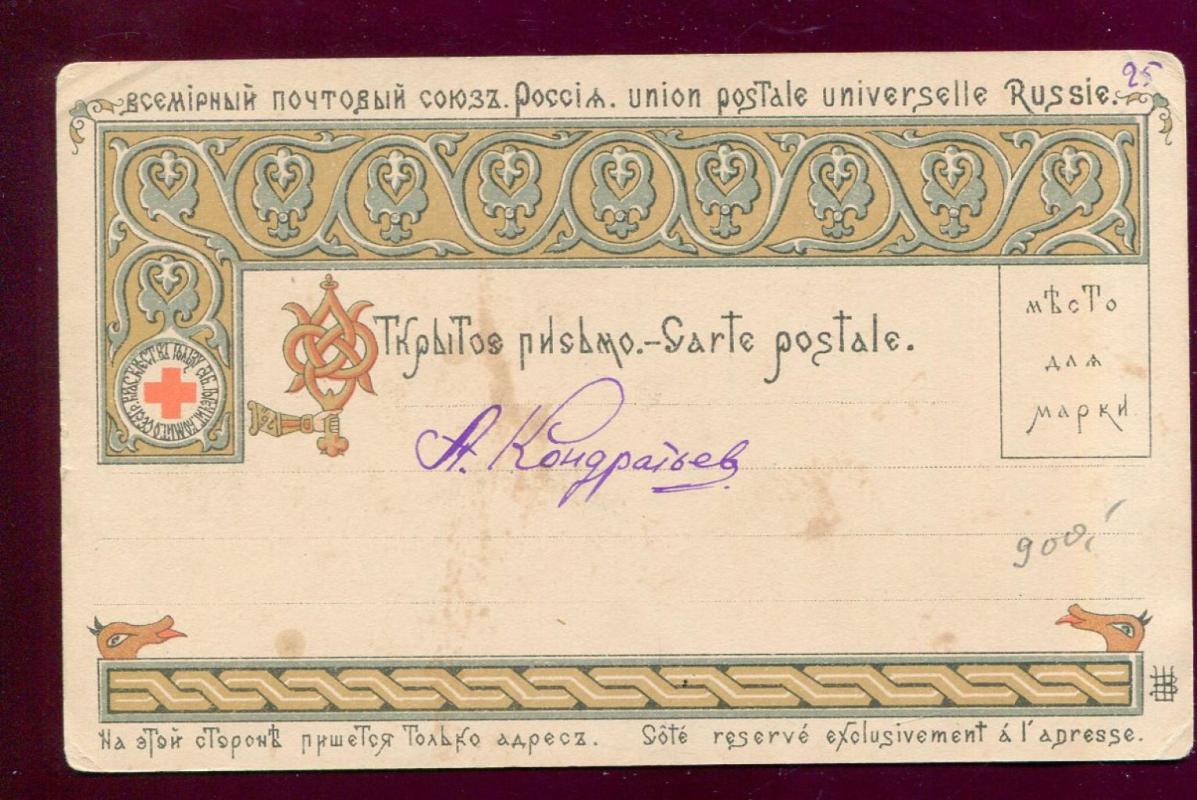 25
всемірный почтовый союзъ. Россія. union postale universelle Russie.
Открытое письмо.-Carte postale.
мѣсто
для
марки
А. Кондратьев
На этой сторонѣ пишется только адресъ. Côté reservé exclusivement á l'adresse.